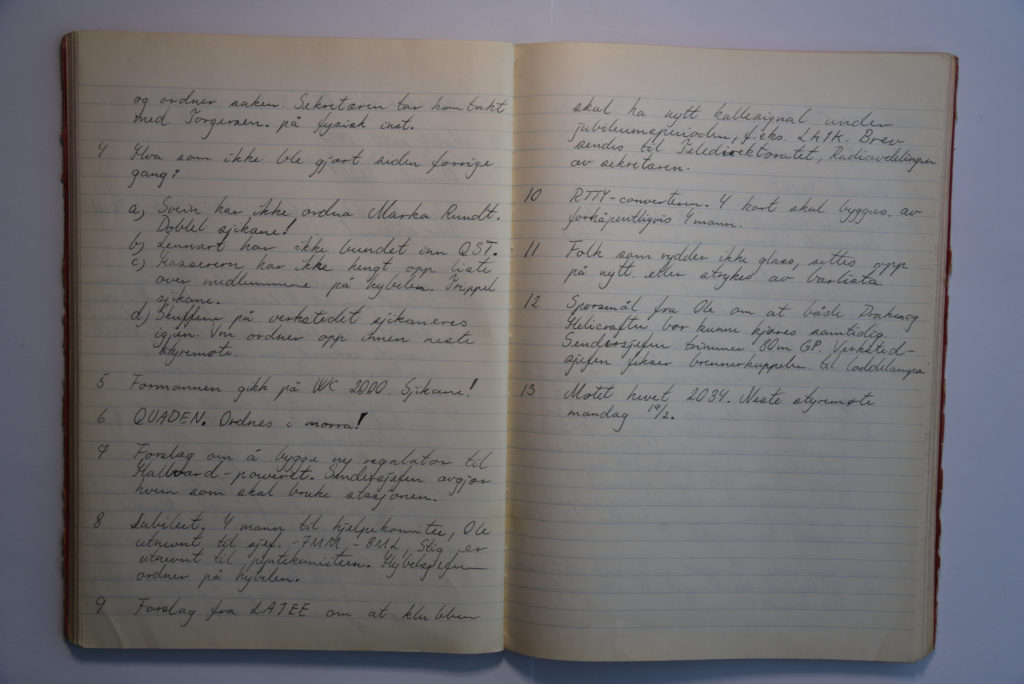 og ordner saken. Sekretæren tar kontakt
med Torgersen. på fysisk inst.
4 Hva som ikke ble gjort siden forrige
gang:
a) Svein har ikke ordna Marka Rundt.
Dobbel sjikane!
b) Lennart har ikke bundet inn QST.
c) Kassereren har ikke hengt opp liste
over medlemmene på hybelen. Trippel
sjikane.
d) Skuffene på verkstedet sjikaneres
igjen. Vm ordner opp innen neste
styremøte.
5 Formannen gikk på WC 2000. Sjikane!
6 QUADEN. Ordnes i morra!
7 Forslag om å bygge ny regulator til
Hallvard-poweret. Sendersjefen avgjør
hvem som skal bruke stasjonen.
8 Jubileet. 4 mann til hjelpekomitee, Ole
utnevnt til sjef. Stig er
utnevnt til pyntekomiteen. Hybelsjefen
ordner på hybelen.
9 Forslag fra LA7EE om at klubben
skal ha nytt kallesignal under
jubileumsperioden, f.eks. LA1K. Brev
sendes til Teledirektoratet, Radioavdelingen
av sekretæren.
10 RTTY-converteren. 4 kort skal bygges. av
forhåpentligvis 4 mann.
11 Folk som rydder ikke glass, settes opp
på nytt. eller strykes av barlista
12 Spørsmål fra Ole om at både Drake og
Helicrafter bør kunne kjøres samtidig.
Sendersjefen trimmer 80m GP. Verksted-
sjefen fikser brennerkuppelen til loddelampa
13 Møtet hevet 2034. Neste styremøte
mandag 19/2.